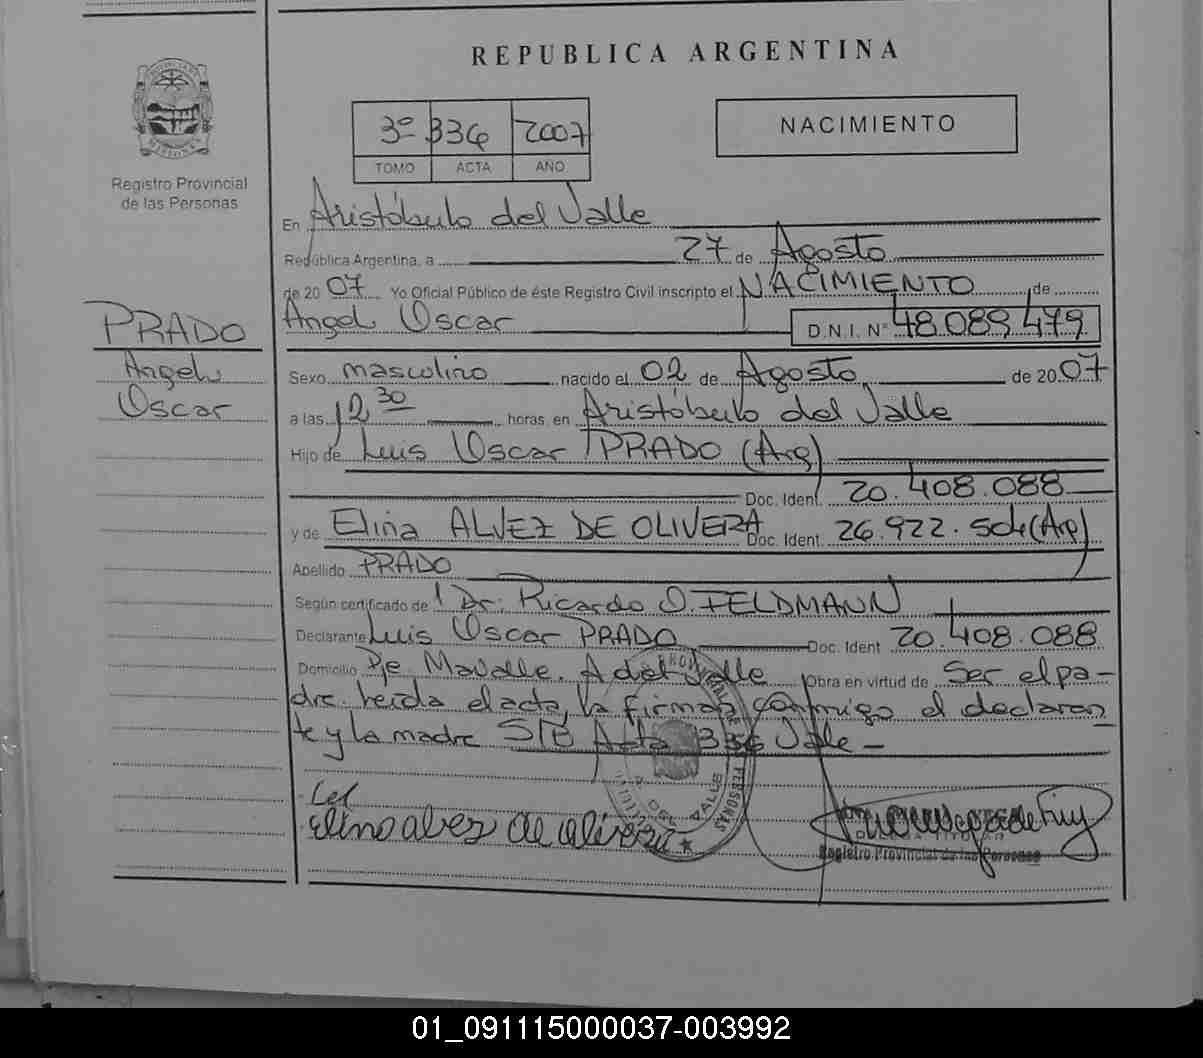 REPUBLICA ARGENTINA
3º 336 2007
TOMO ACTA AÑO
NACIMIENTO
PROVINCIA DE MISIONES
Registro Provincial
de las Personas
En Aristóbulo del Valle
República Argentina, a 27 de Agosto
de 20 07 Yo Oficial Público de éste Registro Civil inscripto el NACIMIENTO de
Angel Oscar D.N.I. Nº 48.089.479
PRADO
Angel
Oscar
Sexo masculino nacido el 02 de Agosto de 20 07
a las 12 30 horas, en Aristóbulo del Valle
Hijo de Luis Oscar PRADO (Arg)
Doc. Ident. 20.408.088
y de Elina ALVEZ DE OLIVERA Doc. Ident. 26.922.504 (Arg)
Apellido PRADO
Según certificado de Dr. Ricardo O. FELDMANN
Declarante Luis Oscar PRADO Doc. Ident 20.408.088
Domicilio Pje. Mavalle. A del Valle Obra en virtud de Ser el pa-
dre. Leída el acta, la firman conmigo el declaran
te y la madre S/B Acta 336 Vale -
elino alvez de olivera
Registro Provincial de las Personas
01_091115000037-003992